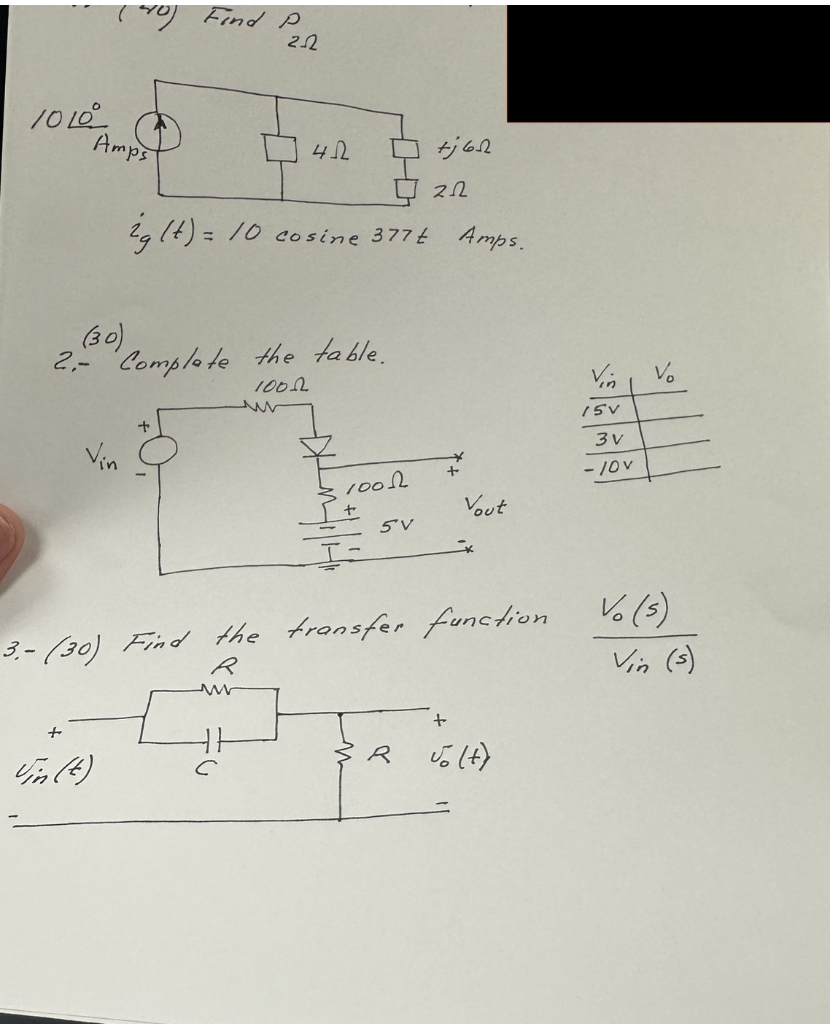 (40) Find P2Ω
10∠0° Amps
4Ω
+j6Ω
2Ω
ig(t) = 10 cosine 377t Amps.
(30)
2.- Complate the table.
100Ω
+
Vin
-
100Ω
+
5V
-
+
Vout
-
Vin | Vo
15V
3V
-10V
3.- (30) Find the transfer function Vo(s) / Vin(s)
R
C
+
vin(t)
-
R
+
vo(t)
-